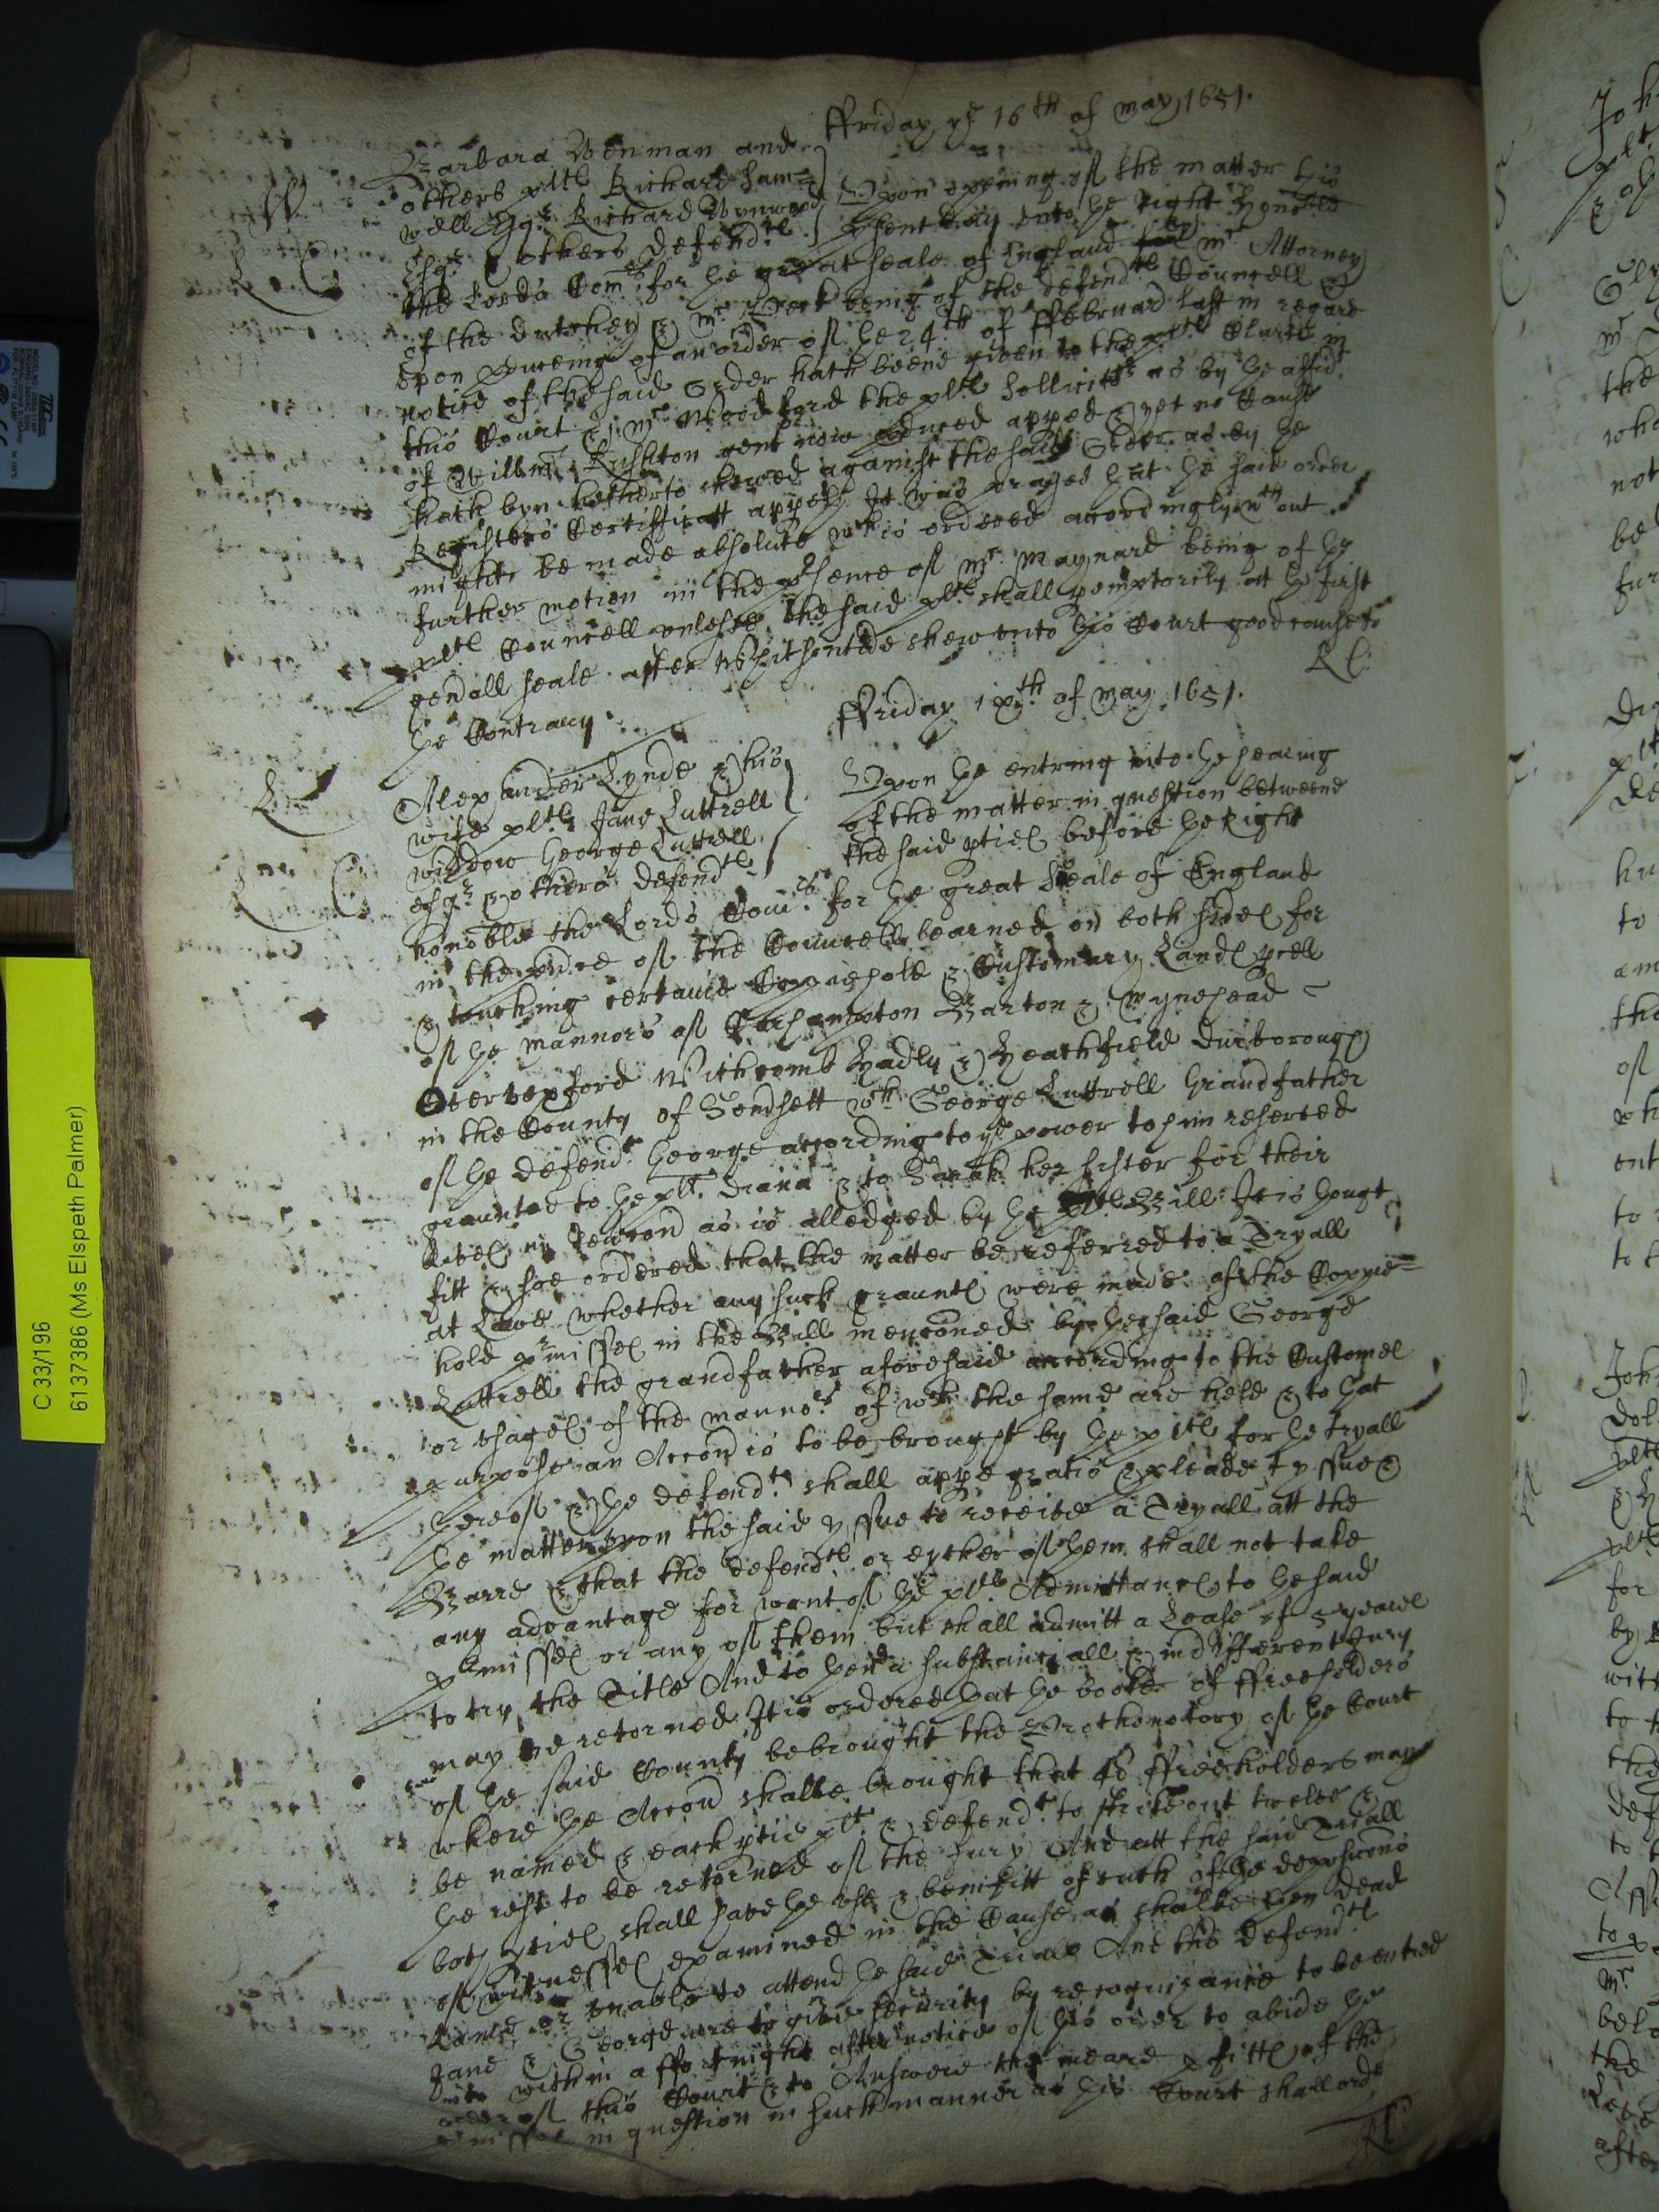 ffriday ye 16th of may 1651.
Barbara Wenman and
others pltes Richard Sam=
well Esqr Richard Wynwood
Esqr & others defendtes
Vpon opening of the matter this
psent day vnto the right honoble
the Lords Comrs for the great seale of England by mr Attorney
of the dutchey & mr Peck being of the defendtes Councell &
vpon pduceing of an order of the 24th of ffebruar last in regard
notice of the said Order hath beene given to the pltes Clarke in
this Court & mr Woodford the pltes sollicitr as by the affidt
of Willm Rishton gent now pduced apped & yet no Cause
hath byn hetherto shewed against the said Order as by the
Registers Certifficatt appeth It was prayed that the said order
might be made absolute wch is ordered accordingly wthout
further motion in the psence of mr Maynard being of the
pltes Councell vnlesse the said pltes shall pemptorily at the first
genall seale after Whitsontide shew vnto this Court good cause to
the Contrary
RC
ffriday 16th of may 1651.
Alexander Lynde & his
wife pltes Jane Luttrell
widdow George Luttrell
esqr & others defendtes
Vpon the entring into the hearing
of the matter in question betweene
the said pties before the Right
honoble the Lords Comrs for the great Seale of England
in the pnce of the Councell learned on both sides for
& touching certaine Coppiehold & Customary Lands pcell
of the mannors of Carhampton Barton & Mynehead
Overvexford Withcomb Hadly & Heathfield Durborough
in the County of Somsett wch George Luttrell Grandfather
of the defendt George according to ye power to him reserved
graunted to the plt Diana & to Sarah her sister for their
lives in Revercon as is alledged by the pltes Bill It is thought
fitt & soe ordered that the matter be referred to a Tryall
at Lawe whether any such graunts were made of the Coppie=
hold pmisses in the Bill mencioned by the said George
Luttrell the grandfather aforesaid according to the Customes
or vsages of the mannors of wch the same are held & to that
purpose an Accon is to be brought by the pltes for the tryall
thereof & the defendtes shall appe gratis & pleade to yssue &
the matter vpon the said yssue to receive a Tryall att the
Barre & that the defendtes or eyther of them shall not take
any advantage for want of the pltes Admittance to the said
pmisses or any of them but shall admitt a Lease of 5 yeares
to try the Title And to thend a substantiall & indifferent Jury
may be retorned It is ordered that the booke of ffreeholders
of the said County be brought the Prothonotory of the Court
where the Accon shalbe brought that 48 ffreeholders may
be named & each ptie plt & defendt to strike out twelve &
the rest to be retorned of the Jury And att the said Triall
both pties shall have the vse & benifitt of such of the deposicons
of witnesses examined in the Cause as shalbe then dead
lame or vnable to attend the said Triall And the defendtes
Jane & George are to give security by recognizance to be entred
into within a ffortnight after notice of this order to abide the
order of this Court & to Answere the meane pfitts of the
pmisses in question in such manner as this Court shall ordr
RC
C 33/196
6137386 (Ms Elspeth Palmer)